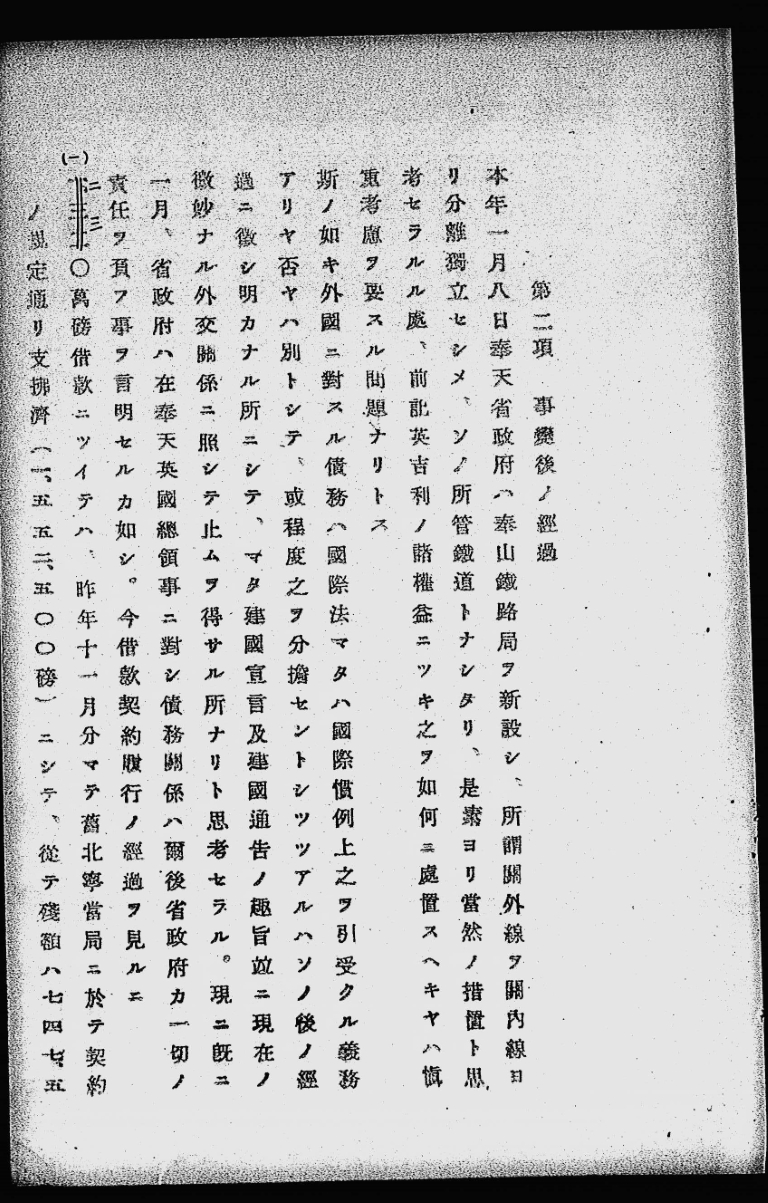 第二項　事變後ノ經過
本年一月八日奉天省政府ハ奉山鐵路局ヲ新設シ、所謂關外線ヲ關内線ヨ
リ分離獨立セシメ、ソノ所管鐵道トナシタリ、是素ヨリ當然ノ措置ト思
考セラルル處、前記英吉利ノ諸權益ニツキ之ヲ如何ニ處置スヘキヤハ愼
重考慮ヲ要スル問題ナリトス
斯ノ如キ外國ニ對スル債務ハ國際法マタハ國際慣例上之ヲ引受クル義務
アリヤ否ヤハ別トシテ、或程度之ヲ分擔セントシツツアルハソノ後ノ經
過ニ徴シ明カナル所ニシテ、マタ建國宣言及建國通告ノ趣旨竝ニ現在ノ
微妙ナル外交關係ニ照シテ止ムヲ得サル所ナリト思考セラル。現ニ既ニ
一月、省政府ハ在奉天英國總領事ニ對シ債務關係ハ爾後省政府カ一切ノ
責任ヲ負フ事ヲ言明セルカ如シ。今借款契約履行ノ經過ヲ見ルニ
(一)二三〇萬磅借款ニツイテハ、昨年十一月分マテ舊北寧當局ニ於テ契約
ノ規定通リ支拂濟（一、五五二、五〇〇磅）ニシテ、從テ殘額ハ七四七、五